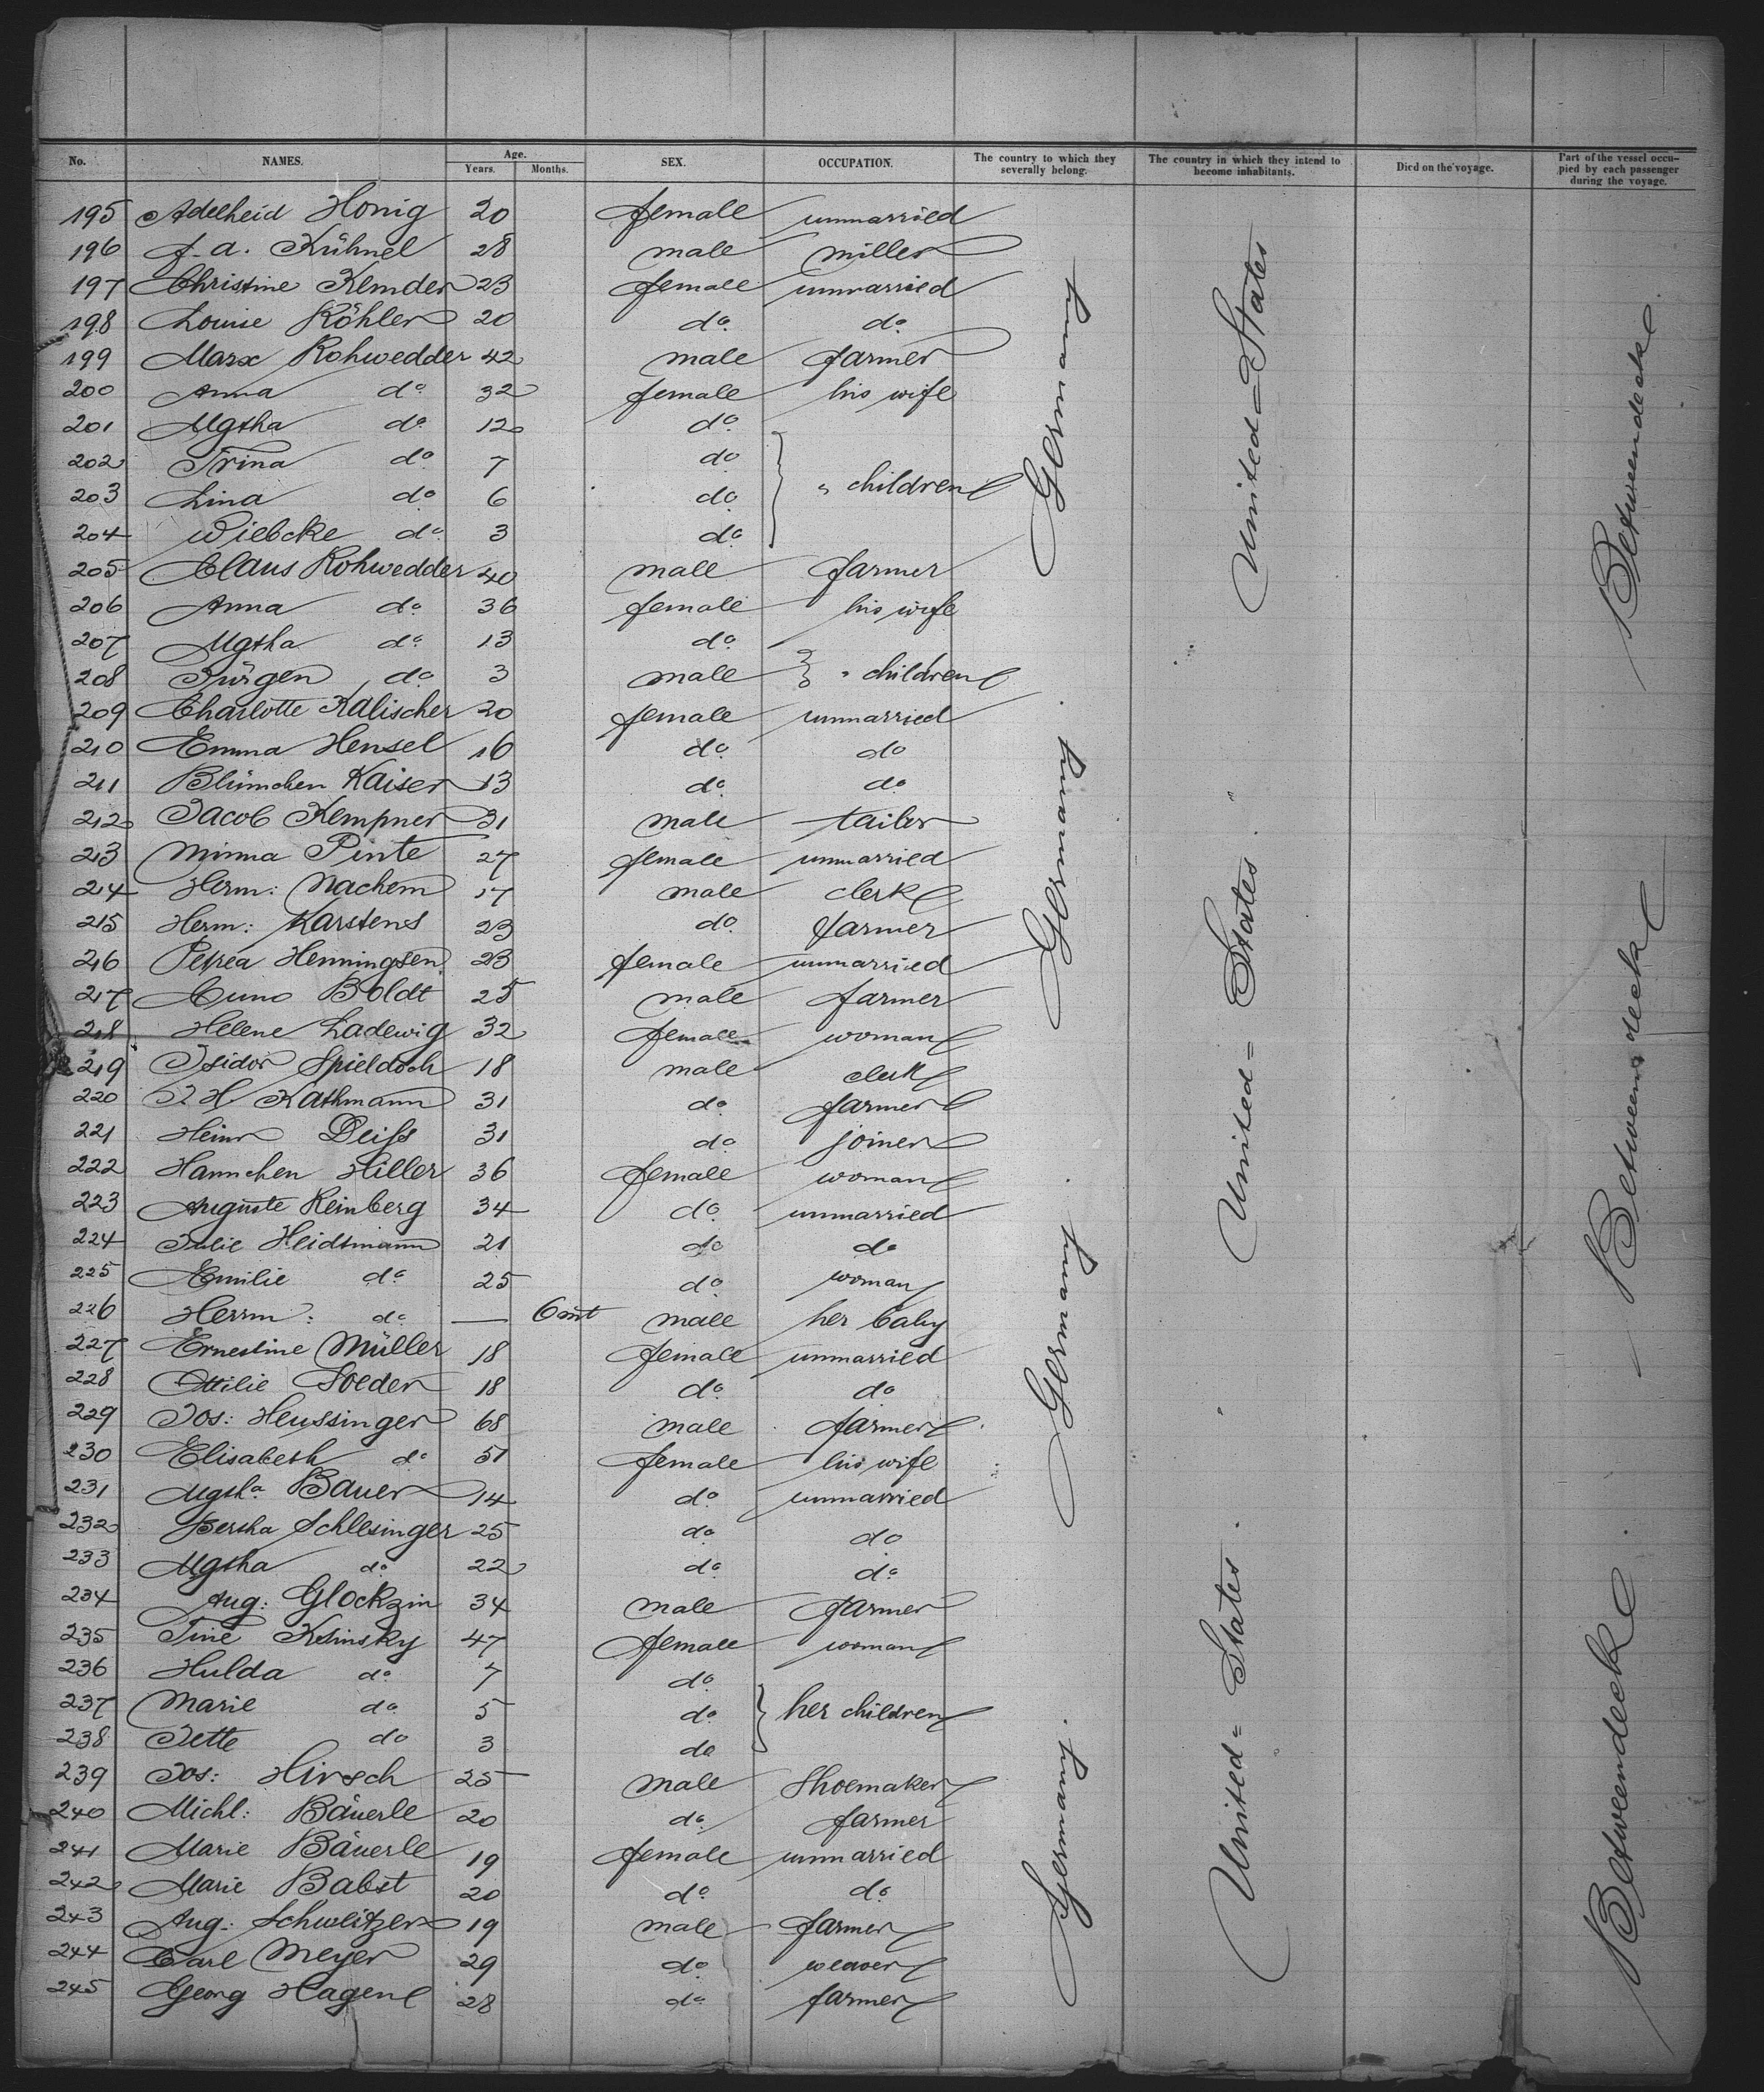 No. NAMES. Age. Years. Months. SEX. OCCUPATION. The country to which they severally belong. The country in which they intend to become inhabitants. Died on the voyage. Part of the vessel occupied by each passenger during the voyage.
195 Adelheid Honig 20 female unmarried
196 F. A. Kühnel 28 male miller
197 Christine Klemder 23 female unmarried
198 Louise Köhler 20 do. do.
199 Marx Rohwedder 42 male farmer
200 Anna do 32 female his wife
201 Mgtha do 12 do.
202 Trina do 7 do
203 Lina do 6 do. " children
204 Wiebcke do 3 do.
205 Claus Rohwedder 40 male farmer
206 Anna do. 36 female his wife
207 Mgtha do. 13 do.
208 Jürgen do. 3 male " children
209 Charlotte Kalischer 20 female unmarried
210 Emma Hensel 16 do. do
211 Blümchen Kaiser 13 do. do.
212 Jacob Kempner 31 male tailor
213 Minna Pinte 27 female unmarried
214 Herm: Nachem 17 male clerk
215 Herm: Karstens 23 do. farmer
216 Petrea Henningsen 23 female unmarried
217 Cuno Boldt 25 male farmer
218 Helene Ladewig 32 female woman
219 Isidor Spieldoch 18 male clerk
220 J H Kathmann 31 do farmer
221 Heinr Deiss 31 do joiner
222 Hannchen Hiller 36 female woman
223 Auguste Reinberg 34 do. unmarried
224 Julie Heidtmann 21 do do
225 Emilie do 25 do. woman
226 Herrm: do. — 6 mt male her baby
227 Ernestine Müller 18 female unmarried
228 Ottilie Soeder 18 do. do
229 Jos: Heussinger 68 male farmer
230 Elisabeth do 51 female his wife
231 Mgtha Bauer 14 do. unmarried
232 Bertha Schlesinger 25 do do
233 Mgtha do. 22 do. do.
234 Aug: Glockzin 34 male farmer
235 Tine 47 female woman
236 Hulda do. 7 do.
237 Marie do. 5 do. her children
238 Jette do 3 do
239 Jos: Hirsch 25 male Shoemaker
240 Michl: Bäuerle 20 do. farmer
241 Marie Bäuerle 19 female unmarried
242 Marie Babst 20 do. do.
243 Aug: Schweitzer 19 male farmer
244 Carl Meyer 29 do. weaver
245 Georg Hagen 28 do. farmer
Germany
Germany
Germany
Germany.
United=States
United= States
United= States.
Betweendeck
Betweendeck
Betweendeck